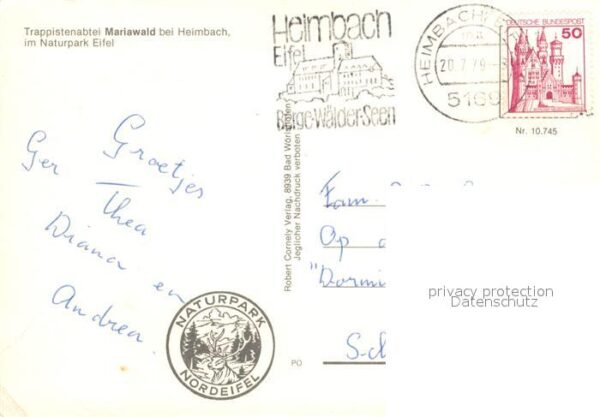 Trappistenabtei Mariawald bei Heimbach,
im Naturpark Eifel
Heimbach
Eifel
Berge-Wälder-Seen
HEIMBACH
20.7.79
5169
DEUTSCHE BUNDESPOST
50
Nr. 10.745
Groetjes
Ger Thea
Diana en
Andrea.
Robert Cornely Verlag, 8939 Bad Wörishofen
Jeglicher Nachdruck verboten
Fam.
Op
"Dormi
privacy protection
Datenschutz
NATURPARK
NORDEIFEL
PO